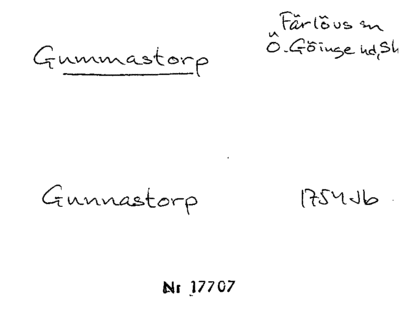 Gummastorp
Färlövs sn
Ö. Göinge hd, Sk
Gunnastorp 1754 Jb
Nr 17707